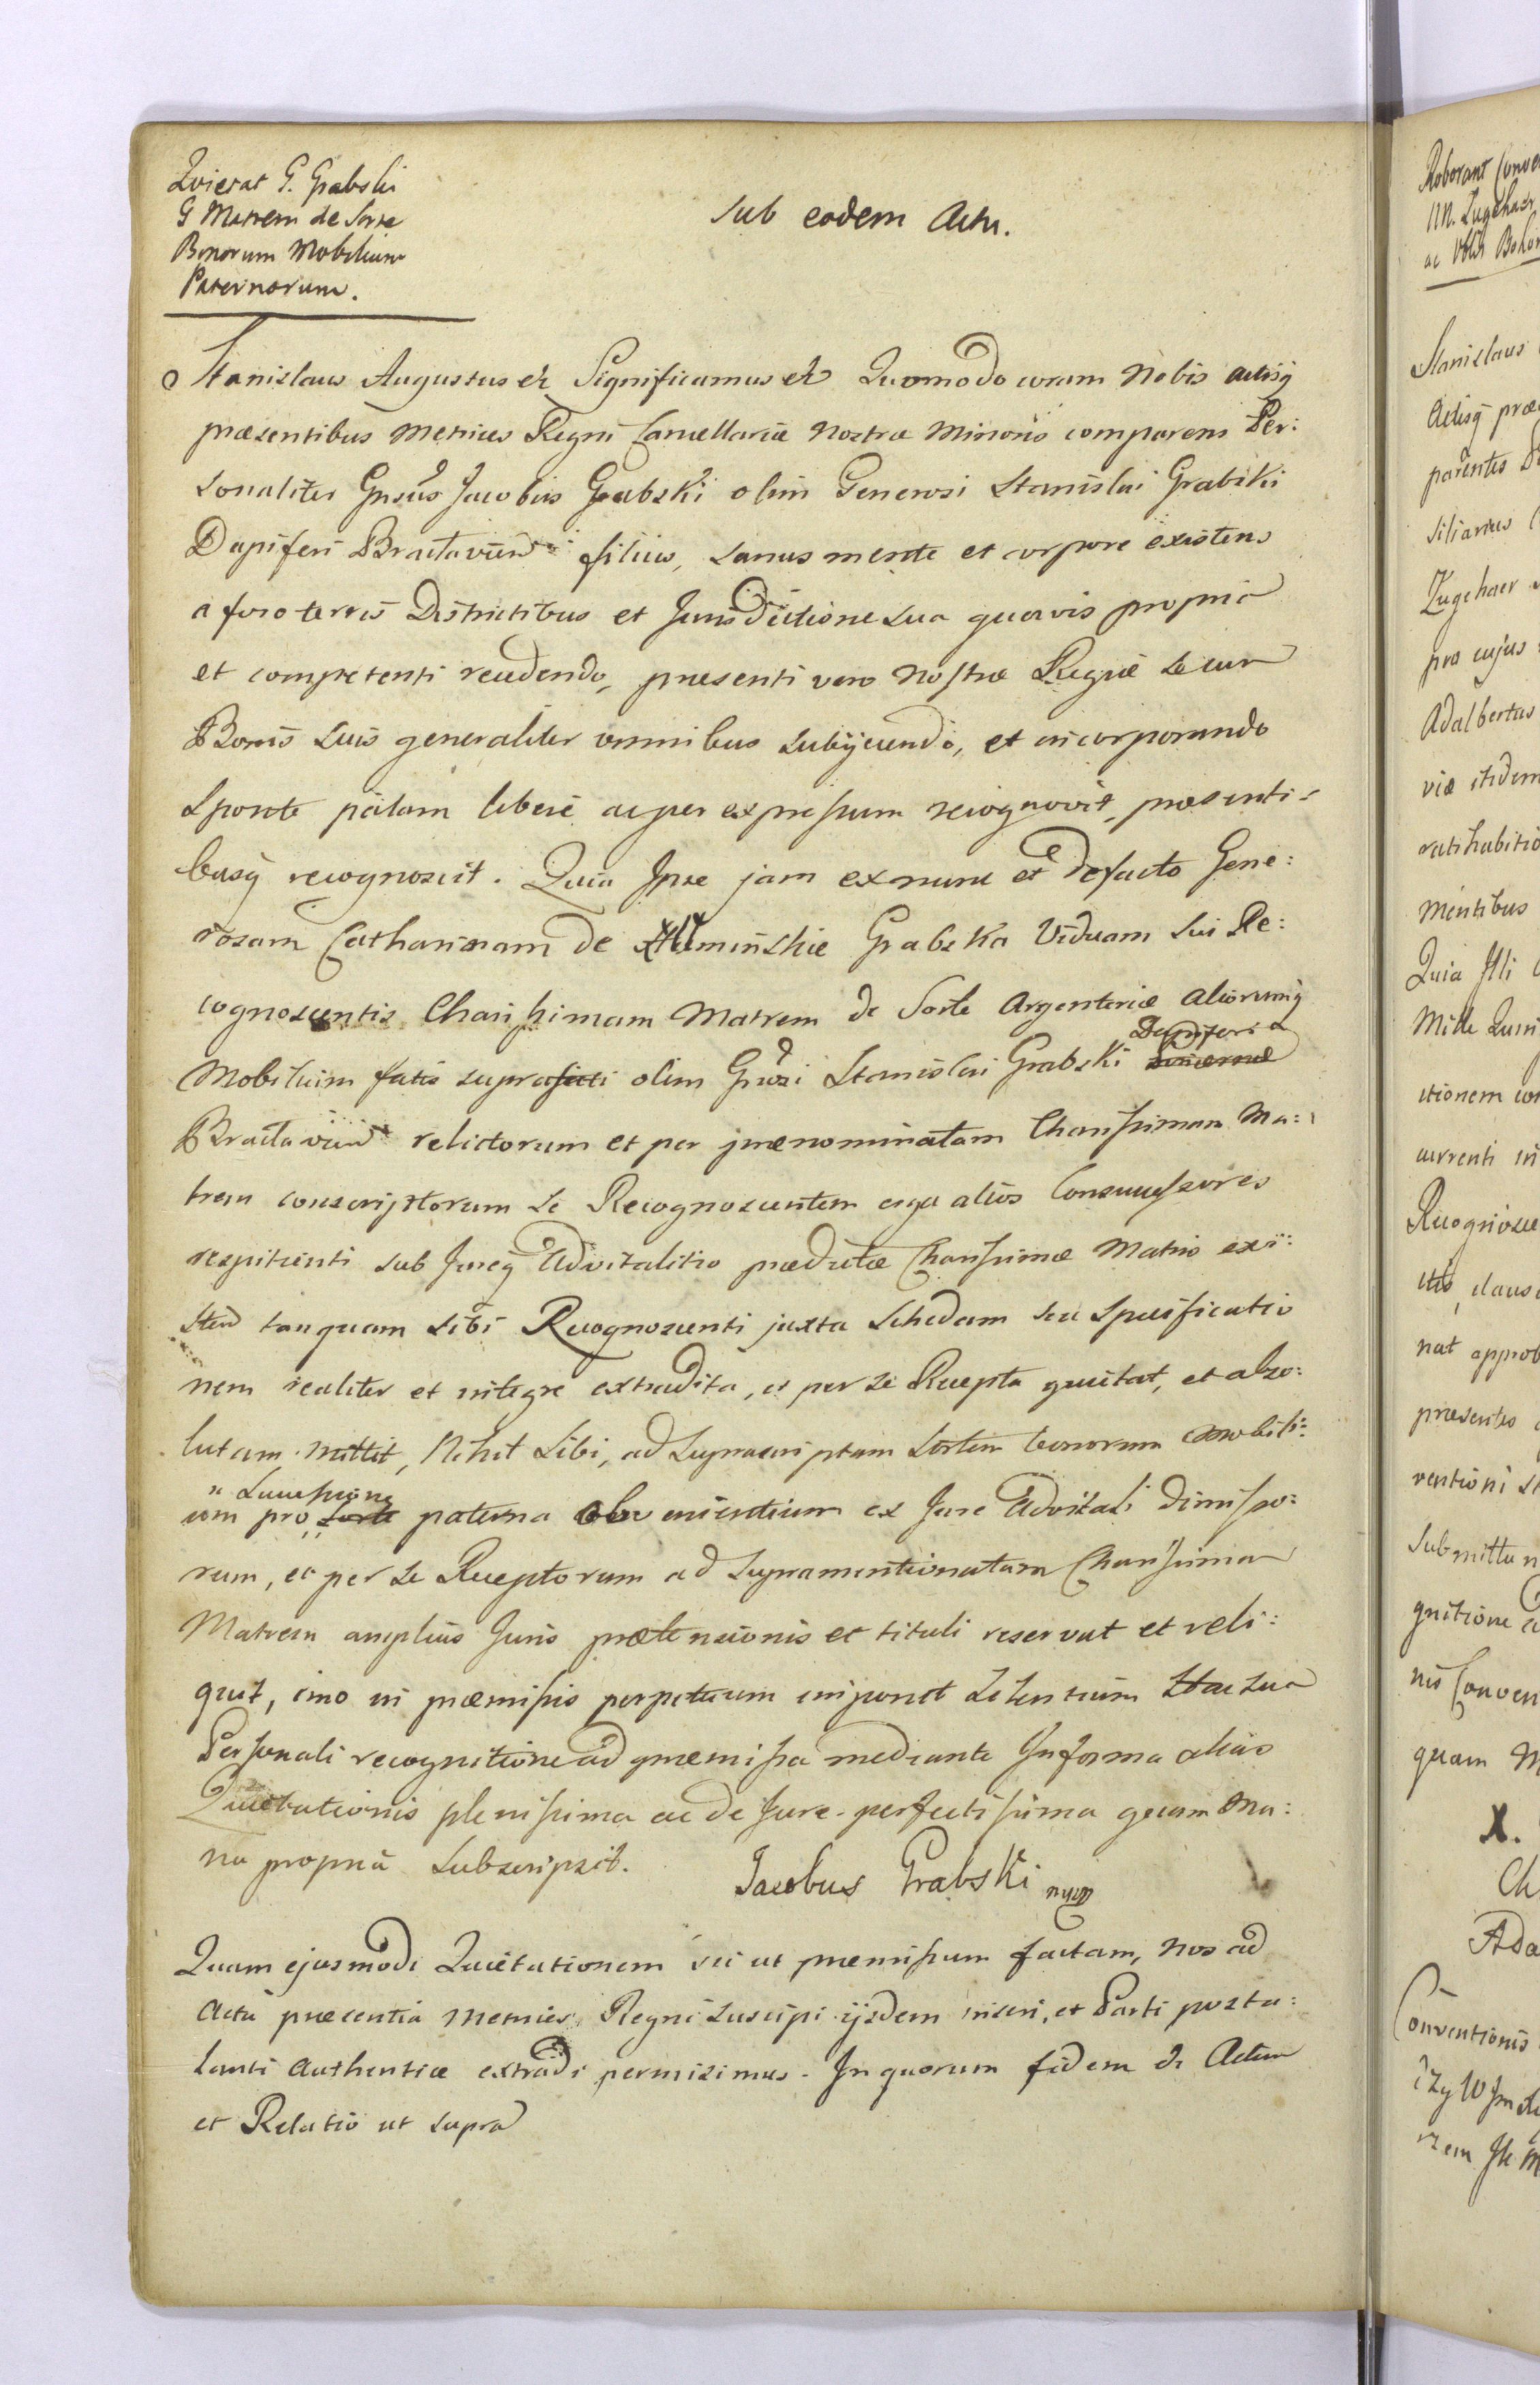 Quietat G. Grabski
G Matrem de Sorte
Bonorum Mobilium
Paternorum.
Sub eodem Actu.
Stanislaus Augustus etc Significamus etc Quomodo coram Nobis actisq
præsentibus Metrices Regni Cancellariæ Nostræ Minoris comparens Per:
sonaliter Gnsus Jacobus Grabski olim Generosi Stanislai Grabski
Dapiferi Braclavien filius, sanus mente et corpore existens
a foro terris Districtibus et Jurisdictione sua quavis propria
et competenti recedendo, præsenti vero Nostræ Regiæ se cum
Bonis suis generaliter omnibus subijciendo, et incorporando
sponte palam libere ac per expressum recognovit, præsenti:
busq recognoscit. Quia Ipse jam ex nunc et de facto Gene:
rosam Catharinam de Grabska Viduam sui Re:
cognoscentis Charissimam Matrem de Sorte Argenteriæ aliorumq
Mobilium fatis supra olim Grosi Stanislai Grabski Dapiferi
Braclavien relictorum et per prænominatam Charissimam Ma:
trem conscriptorum se Recognoscentem erga alios Consuccessores
respicienti sub Jureq Advitalitio prædictæ Charissimæ Matris exi:
sten tanquam sibi Recognoscenti juxta Schedam seu Specificatio
nem realiter et integre extradita, et per se Recepta quietat, et abso:
lutam mittit, Nihil sibi, ad supra scriptam Sortem bonorum mobili:
um pro sorte Successione paterna obvenientium ex Jure Advitali dimisso:
rum, et per se Receptorum ad supramentionatam Charissimam
Matrem amplius Juris prætensionis et tituli reservat et reli:
quit, imo in præmissis perpetuum imponit silentium Hac sua
Personali recognitione ad præmissa mediante In forma alias
Quietationis plenissima ac de Jure perfectissima quam Ma:
nu propria subscripsit.
Jacobus Grabski mpp
Quam ejusmodi Quietationem sic ut præmissum factam, Nos ad
Acta præsentia Metrices Regni suscipi ijsdem inseri, et Parti postu:
lanti authentice extradi permisimus. In quorum fidem etc Actum
et Relatio ut supra
Roborant
NN. Zugehaer
ac
Stanislaus
Actisq præ
parentes
siliarius
Zugehaer
pro cujus
Adalbertus
viæ itidem
ratihabitio
mentibus
Quia Illi
Mille Quin
itionem con
currenti in
Recognosce
ctis, claus
nat approb
præsentes
ventioni st
Submittun
gnitione
nis Conven
quam M
X.
Ch
Ada
Conventionis
rzem